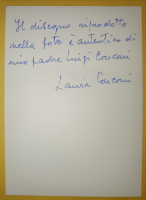 Il disegno riprodotto
nella foto è autentico di
mio padre Luigi Conconi
Laura Conconi